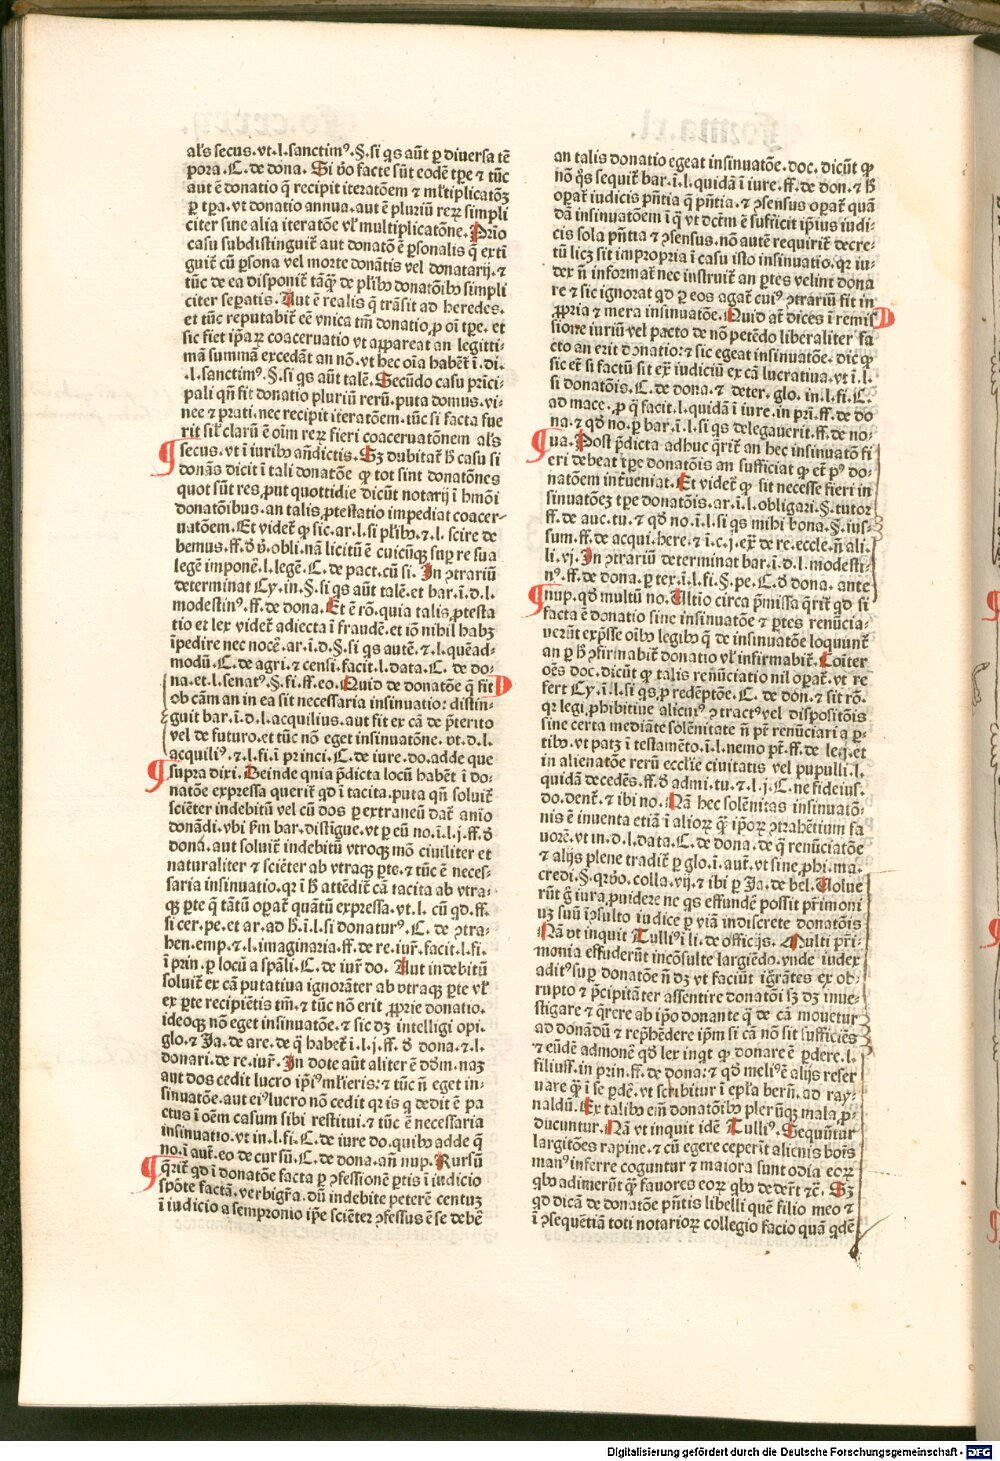 al's secus. vt. l. sanctimꝰ. §. si qs aūt ꝑ diuersa tē
pora. C. de dona. Si ṽo facte sūt eodē tꝑe ⁊ tūc
aut ē donatio q̄ recipit iteratōem ⁊ ml'tiplicatōꝫ
ꝑ tꝑa. vt donatio annua. aut ē pluriū reꝝ simpli
citer sine alia iteratōne vl' multiplicatōne. Prīo
casu subdistinguit̃ aut donatō ē ꝑsonalis q̄ extī
guit̃ cū ꝑsona vel morte donātis vel donatarij. ⁊
tūc de ea disponit̃ tāqꝫ de pl'ibꝰ donatōibꝰ simpli
citer seꝑatis. Aut ē realis q̄ trāsit ad heredes.
et tūc reputabit̃ eē vnica tm̄ donatio ꝓ oī tꝑe. et
sic fiet ip̄aꝝ coaceruatio vt appareat an legitti-
mā summā excedāt an nō. vt hec oīa habēt̃ ī. di.
.l. sanctimꝰ. §. si qs aūt talē. Secūdo casu prīci-
pali qn̄ fit donatio pluriū rerū. puta domus. vi-
nee ⁊ prati. nec recipit iteratōem. tūc si facta fue
rit sil' clarū ē oīm reꝝ fieri coaceruatōnem al's
secus. vt ī iuribꝰ an̄dictis. Sꝫ dubitat̃ ħ casu si
donās dicit ī tali donatōe ꝙ tot sint donatōnes
quot sūt res, put quottidie dicūt notarij ī hmōi
donatōibus. an talis, ptestatio impediat coacer-
uatōem. Et videt̃ ꝙ sic. ar. l. si pl'ibꝰ. ⁊. l. scire de
bemus. ff. đ ṽ. obli. nā licitū ē cuicūqꝫ suꝑ re sua
legē imponē. l. legē. C. de pact. cū si. In ꝯtrariū
determinat Cy. in. §. si qs aūt talē. et bar. ī. d. l.
modestinꝰ. ff. de dona. Et ē rō. quia talis, ptesta
tio et lex videt̃ adiecta ī fraudē. et iō nihil habꝫ
īpedire nec nocē. ar. ī. d. §. si qs autē. ⁊. l. quēad-
modū. C. de agri. ⁊ censi. facit. l. data. C. de do-
na. et. l. senatꝰ. §. fi. ff. eo. Quid de donatōe q̄ fit
ob cām an in ea sit necessaria insinuatio: distin-
guit bar. ī. d. l. acquilius. aut fit ex cā de p̄terito
vel de futuro. et tūc nō eget insinuatōne. vt. d. l.
acquiliꝰ. ⁊. l. fi. ī princi. C. de iure. do. adde que
supra dixi. Deinde qnia p̄dicta locū habēt ī do-
natōe expressa querit̃ qd ī tacita. puta qn̄ soluit̃
sciēter indebitū vel cū dos ꝑ extraneū dat̃ anīo
donādi. vbi ẜm bar. distīgue. vt ꝑ eū no. ī. l. j. ff. đ
dona. aut soluit̃ indebitū vtroqꝫ mō ciuiliter et
naturaliter ⁊ sciēter ab vtraqꝫ ꝑte. ⁊ tūc ē neces-
saria insinuatio. qꝛ ī ħ attēdit̃ cā tacita ab vtra-
qꝫ ꝑte q̄ tātū oꝑat̃ quātū expressa. vt. l. cū qd. ff.
si cer. pe. et ar. ad ħ. ī. l. si donaturꝰ. C. de ꝯtra-
hen. emp. ⁊. l. imaginaria. ff. de re. iur̃. facit. l. fi.
ī prin. ꝑ locū a sp̄ali. C. de iur̃ do. Aut indebitū
soluit̃ ex cā putatiua ignorāter ab vtraqꝫ ꝑte vl'
ex ꝑte recipiētis tm̄. ⁊ tūc nō erit, prie donatio.
ideoqꝫ nō eget insinuatōe. ⁊ sic dꝫ intelligi opi.
glo. ⁊ Ja. de are. de q̄ habet̃ ī. l. j. ff. đ dona. ⁊. l.
donari. de re. iur̃. In dote aūt aliter ē dd'm. naꝫ
aut dos cedit lucro ip̄iꝰ ml'ieris: ⁊ tūc n̄ eget in-
sinuatōe. aut eiꝰ lucro nō cedit qꝛ is q dedit ē pa
ctus ī oēm casum sibi restitui. ⁊ tūc ē necessaria
insinuatio. vt in. l. fi. C. de iure do. quibꝰ adde q̄
no. ī aut̃. eo de cursū. C. de dona. an̄ nup. Rursū
q̄rit̃ qd ī donatōe facta ꝑ ꝯfessionē ꝑtis ī iudicio
spōte factā. verbigr̄a. dū indebite peterē centuꝫ
ī iudicio a sempronio ip̄e sciēter ꝯfessus ē se debē
an talis donatio egeat insinuatōe. doc. dicūt ꝙ
nō q̄s sequit̃ bar. ī. l. quidā ī iure. ff. de don. ⁊ ħ
oꝑat̃ iudicis p̄ntia q̄ p̄ntia. ⁊ ꝯsensus oꝑat̃ quā
dā insinuatōem ī q̄ vt dc̄tm ē sufficit ip̄ius iudi-
cis sola p̄ntia ⁊ ꝯsensus. nō autē requirit̃ decre-
tū licꝫ sit impropria ī casu isto insinuatio. qꝛ iu-
dex n̄ informat̃ nec instruit̃ an ꝑtes velint dona
re ⁊ sic ignorat qd ꝑ eos agat̃ cuiꝰ ꝯtrariū fit in
, ppria ⁊ mera insinuatōe. Quid at̃ dices ī remis
sione iuriū vel pacto de nō petēdo liberaliter fa
cto an erit donatio: ⁊ sic egeat insinuatōe. dic ꝙ
sic et̃ si factū sit ex̃ iudiciū ex cā lucratiua. vt ī. l.
si donatōis. C. de dona. ⁊ deter. glo. in. l. fi. C.
ad mace. ꝓ q̄ facit. l. quidā ī iure. in pri. ff. de do
na. ⁊ qd no. ꝑ bar. ī. l. si qs delegauerit. ff. de no-
ua. Post p̄dicta adhuc q̄rit̃ an hec insinuatō fi
eri debeat tꝑe donatōis an sufficiat ꝙ et̃ pꝰ do-
natōem int̃ueniat. Et videt̃ ꝙ sit necesse fieri in
sinuatōeꝫ tꝑe donatōis. ar. ī. l. obligari. §. tutor
ff. de auc. tu. ⁊ qd no. ī. l. si qs mihi bona. §. ius-
sum. ff. de acqui. here. ⁊ ī. c. j. ex̃ de re. eccle. n̄ ali.
li. vj. In ꝯtrariū determinat bar. ī. d. l. modesti-
nꝰ. ff. de dona. ꝑ tex. ī. l. fi. §. pe. C. đ dona. ante
nup. qd multū no. Ultīo circa p̄missa q̄rit̃ qd si
facta ē donatio sine insinuatōe ⁊ ꝑtes renūcia-
uerūt exp̄sse oībꝰ legibꝰ q̄ de insinuatōe loquunt̃
an ꝑ ħ ꝯfirmabit̃ donatio vl' infirmabit̃. Coīter
oēs doc. dicūt ꝙ talis renūciatio nil oꝑat̃. vt re
fert Cy. ī. l. si qs, p redēptōe. C. de don. ⁊ sit rō.
qꝛ legi, phibitiue alicuiꝰ ꝯtractꝰ vel dispositōis
sine certa mediāte solēnitate n̄ pt̃ renūciari a ꝑ-
tibꝰ. vt patꝫ ī testamēto. ī. l. nemo pt̃. ff. de le. j. et
in alienatōe rerū eccl'ie ciuitatis vel pupulli. l.
quidā decedēs. ff. đ admi. tu. ⁊. l. j. C. ne fideius.
do. dent̃. ⁊ ibi no. Nā hec solēnitas insinuatō-
nis ē inuenta etiā ī alioꝝ q̄ ip̄oꝝ ꝯtrahētium fa
uorē. vt in. d. l. data. C. de dona. de q̄ renūciatōe
⁊ alijs plene tradit̃ ꝑ glo. ī. aut̃. vt sine, phi. ma.
credi. §. qꝛṽo. colla. vij. ⁊ ibi ꝑ Ja. de bel. Uolue
rūt g̃ iura, puidere ne qs effundē possit p̃rimoni
uꝫ suū īꝯsulto iudice ꝑ viā indiscrete donatōis
Nā vt inquit Tulliꝰ ī li. de officijs. Multi p̃ri-
monia effuderūt incōsulte largiēdo. vnde iudex
aditꝰ suꝑ donatōe n̄ dꝫ vt faciūt igr̄ātes ex ob-
rupto ⁊ p̄cipitāter assentire donatōi sꝫ dꝫ inue-
stigare ⁊ q̄rere ab ip̄o donante q̄ de cā mouetur
ad donādū ⁊ rep̄hēdere ip̄m si cā nō sit sufficiēs
⁊ eūdē admonē qd lex inqt ꝙ donare ē ꝑdere. l.
filiusff. in prin. ff. de dona: ⁊ qd meliꝰ ē alijs reser
uare q̄ ī se ꝑdē. vt scribitur ī epl'a bern̄. ad ray-
naldū. Ex talibꝰ em̄ donatōibꝰ plerūqꝫ mala, p-
ducuntur. Nā vt inquit idē Tulliꝰ. Sequūtur
largitōes rapine. ⁊ cū egere ceperīt alienis bois
manꝰ inferre coguntur ⁊ maiora sunt odia eoꝝ
qbꝰ adimerūt q̄ fauores eoꝝ qbꝰ dedert̃ ⁊c̄. Sꝫ
qd dicā de donatōe p̄ntis libelli quē filio meo ⁊
ī ꝯsequētiā toti notarioꝝ collegio facio quā qdē
Digitalisierung gefördert durch die Deutsche Forschungsgemeinschaft - DFG